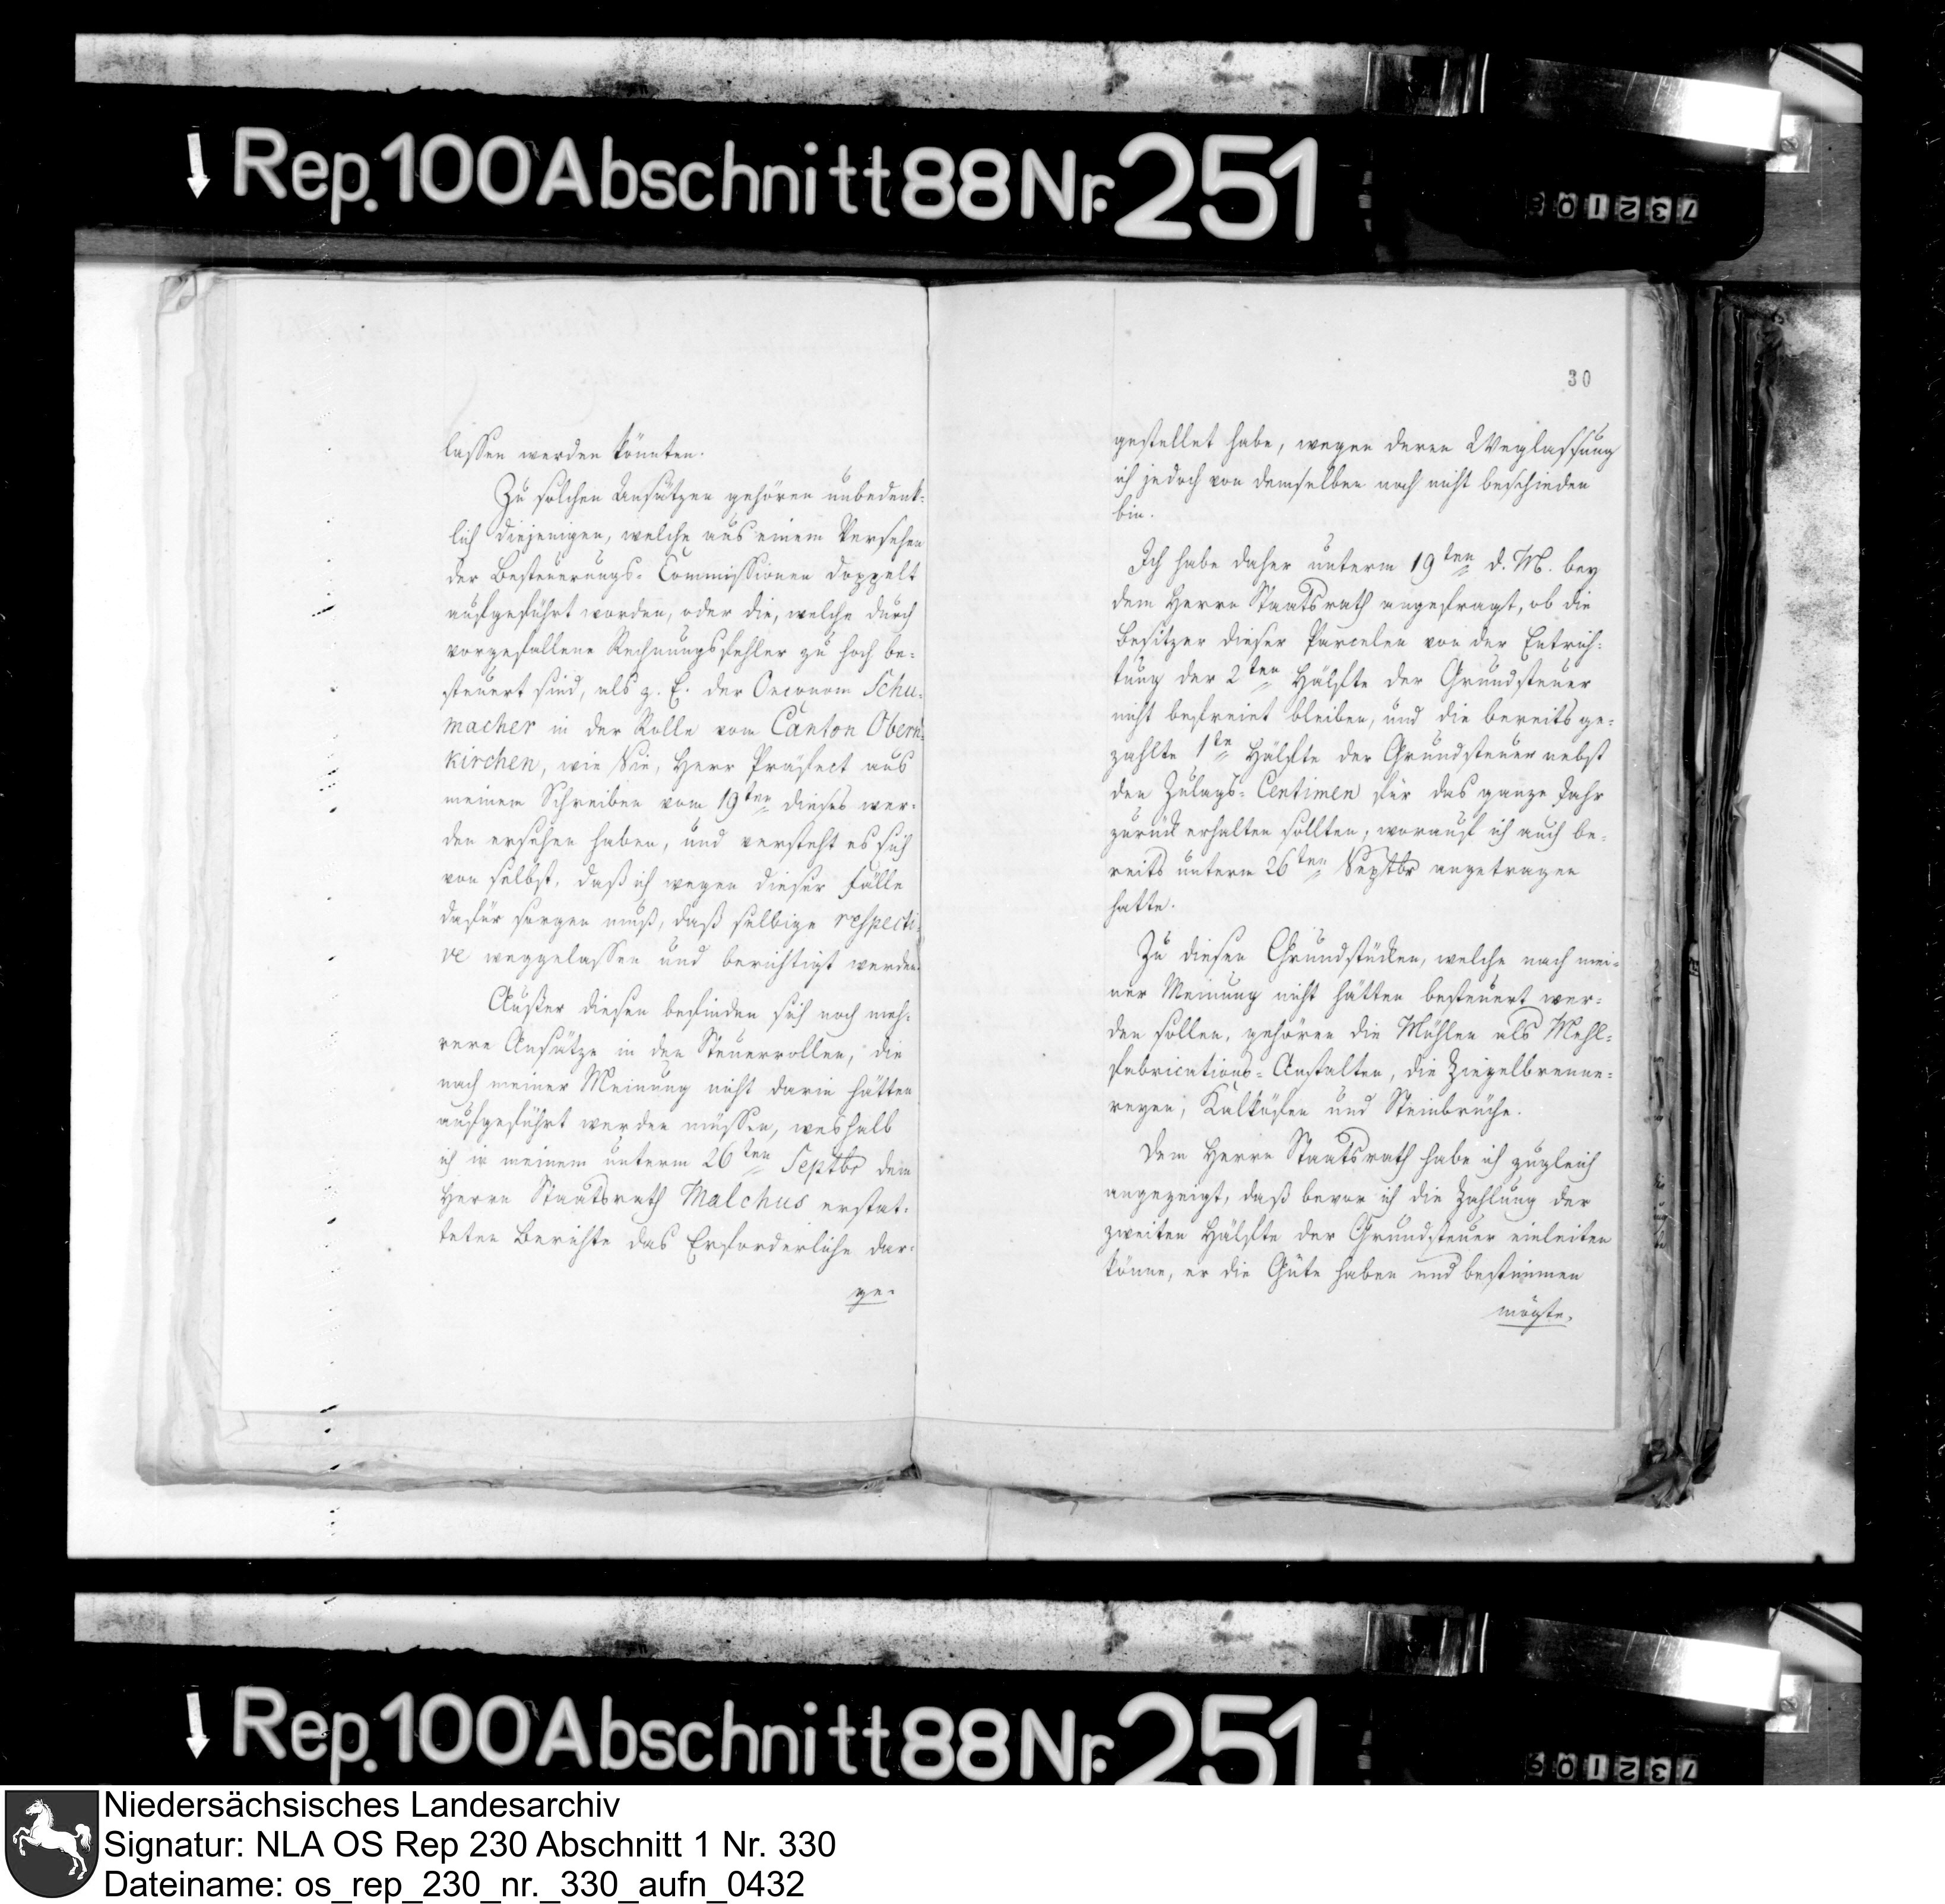 Rep. 100 Abschnitt 88 Nr. 251
732103
lassen werden könnten.
Zu solchen Ansätzen gehören unbedenk-
lich diejenigen, welche aus einem Versehen
der Besteuerungs-Commissionen doppelt
aufgeführt worden, oder die, welche durch
vorgefallene Rechnungsfehler zu hoch be-
steuert sind, als z. E. der Oeconom Schu-
macher in der Rolle vom Canton Obern-
kirchen, wie Sie, Herr Präfect aus
meinem Schreiben vom 19ten dieses wer-
den ersehen haben, und versteht es sich
von selbst, daß ich wegen dieser Fälle
dafür sorgen muß, daß selbige respecti-
ve weggelassen und berichtigt werden.
Außer diesen befinden sich noch meh-
rere Ansätze in den Steuerrollen, die
nach meiner Meinung nicht darin hätten
aufgeführt werden müssen, weshalb
ich in meinem unterm 26ten Septbr dem
Herrn Staatsrath Malchus erstat-
teten Berichte das Erforderliche dar-
ge-
30
gestellet habe, wegen deren Weglassung
ich jedoch von demselben noch nicht beschieden
bin.
Ich habe daher unterm 19ten d. M. bey
dem Herrn Staatsrath angefragt, ob die
Besitzer dieser Parcelen von der Entrich-
tung der 2ten Hälfte der Grundsteuer
nicht befreiet bleiben, und die bereits ge-
zahlte 1te Hälfte der Grundsteuer nebst
den Zulags-Centimen für das ganze Jahr
zurück erhalten sollten, worauf ich auch be-
reits unterm 26ten Septbr angetragen
hatte.
Zu diesen Grundstücken, welche nach mei-
ner Meinung nicht hätten besteuert wer-
den sollen, gehören die Mühlen als Mehl-
fabrications-Anstalten, die Ziegelbrenne-
reyen, Kalköfen und Steinbrüche.
Dem Herrn Staatsrath habe ich zugleich
angezeigt, daß bevor ich die Zahlung der
zweiten Hälfte der Grundsteuer einleiten
könne, er die Güte haben und bestimmen
mögte,
Rep. 100 Abschnitt 88 Nr. 251
Niedersächsisches Landesarchiv
Signatur: NLA OS Rep 230 Abschnitt 1 Nr. 330
Dateiname: os_rep_230_nr._330_aufn_0432